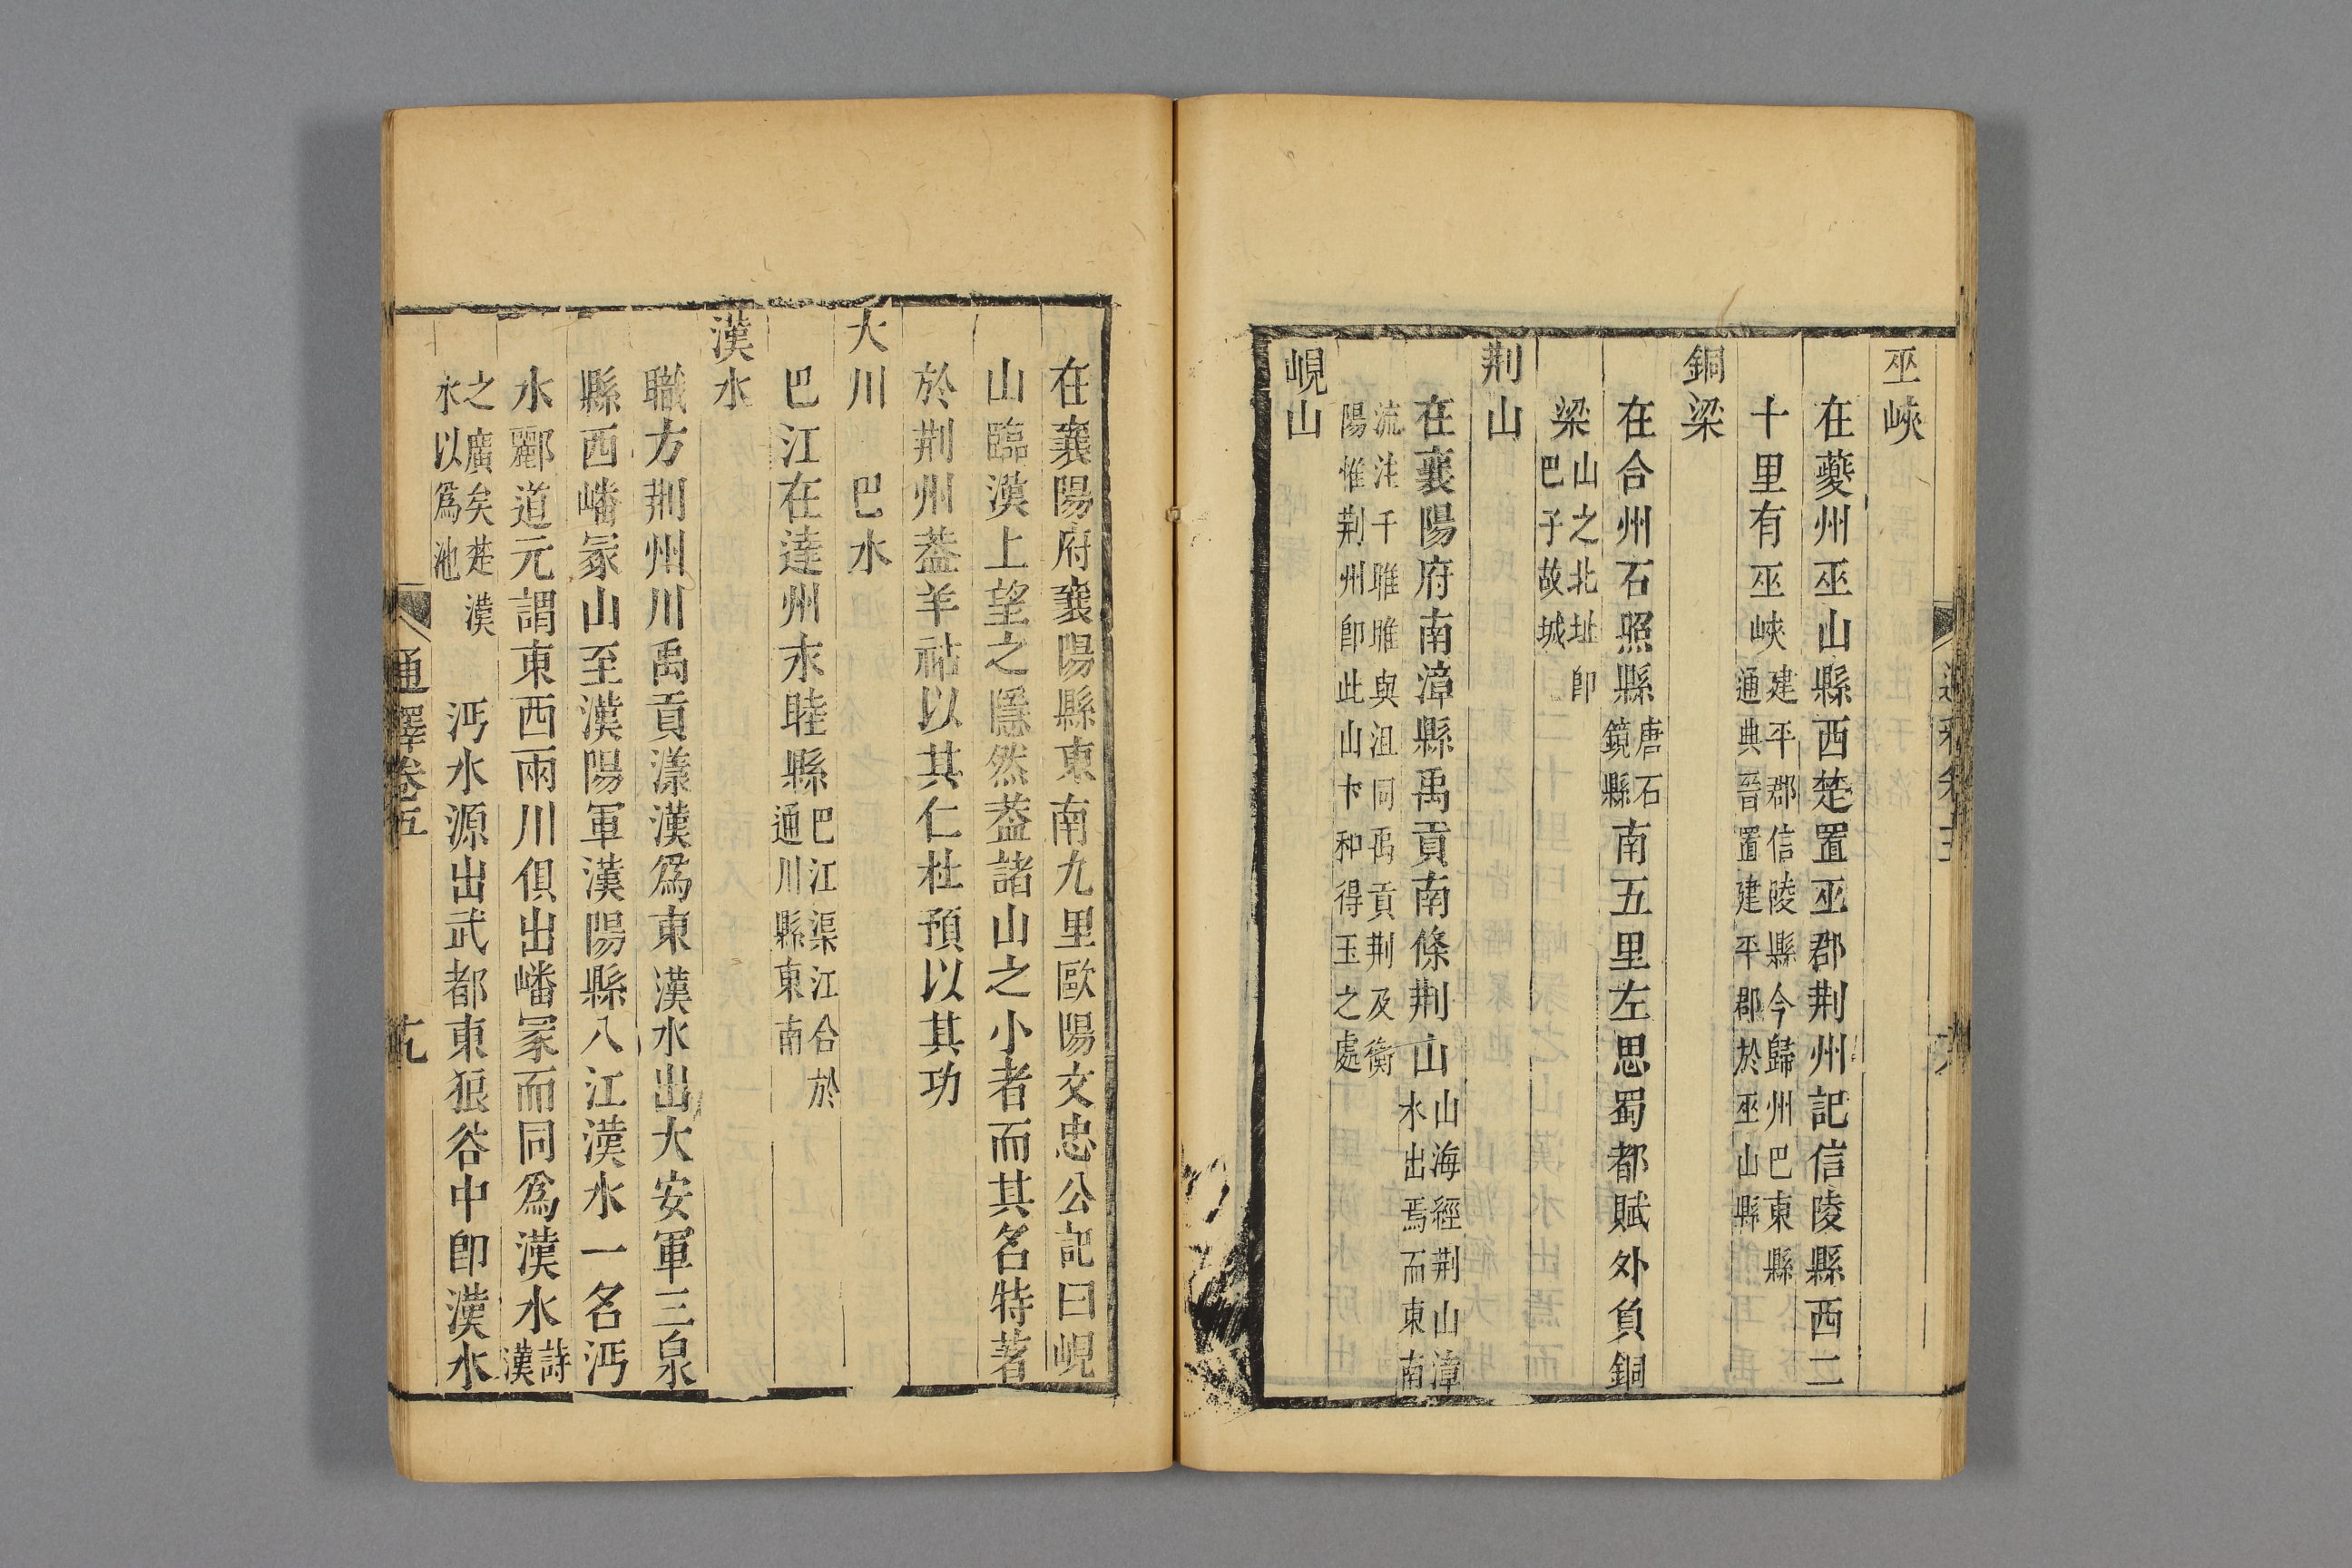 巫峽
在夔州巫山縣西楚置巫郡荆州記信陵縣西二
十里有巫峽建平郡信陵縣今歸州巴東縣通典晉置建平郡於巫山縣
銅梁
在合州石照縣唐石鏡縣南五里左思蜀都賦外負銅
梁山之北址即巴子故城
荆山
在襄陽府南漳縣禹貢南條荆山山海經荆山漳水出焉而東南
流注千雎雎與沮同禹貢荆及衡陽惟荆州即此山卞和得玉之處
峴山
在襄陽府襄陽縣東南九里歐陽文忠公記曰峴
山臨漢上望之隱然葢諸山之小者而其名特著
於荆州葢羊祜以其仁杜預以其功
大川　巴水
巴江在達州永睦縣巴江渠江合於通川縣東南
漢水
職方荆州川禹貢漾漢爲東漢水出大安軍三泉
縣西嶓冢山至漢陽軍漢陽縣入江漢水一名沔
水酈道元謂東西兩川俱出嶓冢而同爲漢水詩漢
之廣矣楚漢水以爲池　沔水源出武都東狼谷中即漢水
通釋卷五
九